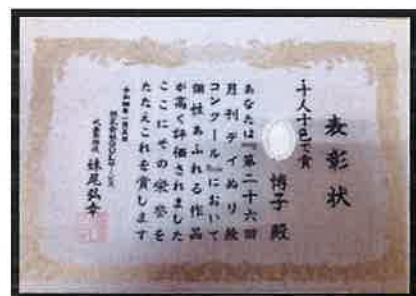 表彰状
十人十色で賞
博子 殿
あなたは『第二十六回
月刊デイぬり絵
コンクール』において
個性あふれる作品
が高く評価されました
ここにその栄誉を
たたえこれを賞します
妹尾弘幸